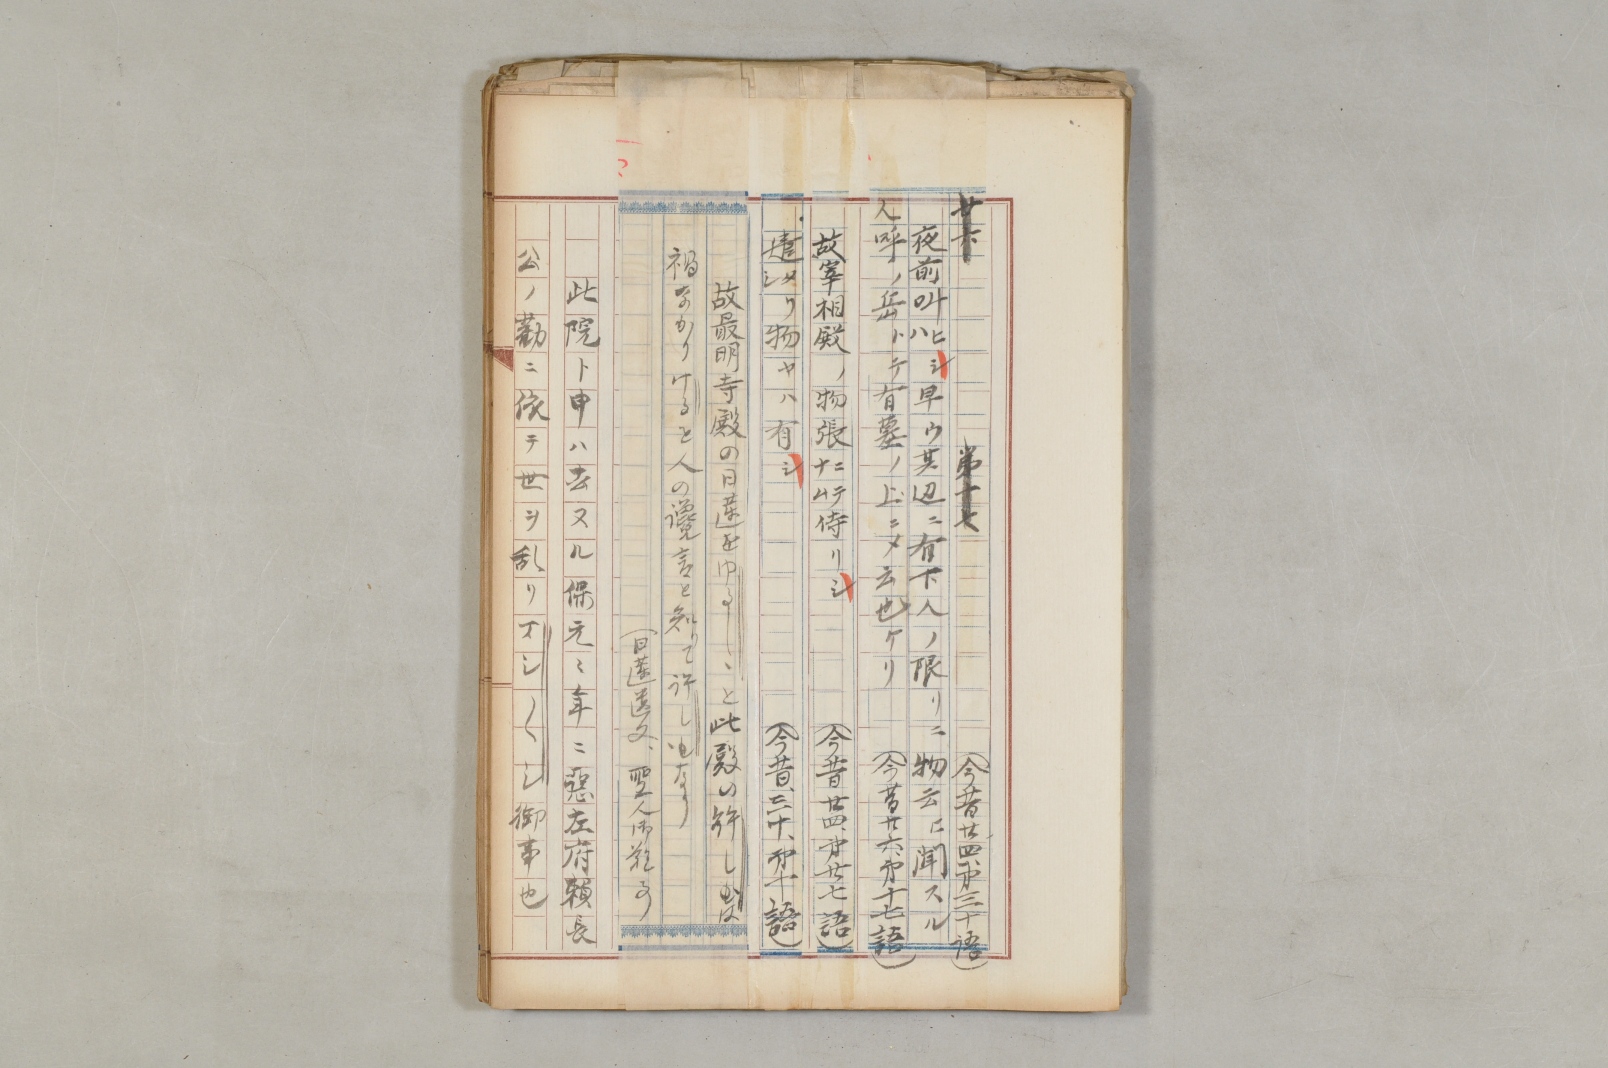 廿六　第十七（今昔廿四、第三十語）
夜前叫ハヒシ早ウ其辺ニ有下人ノ限リニ物云ヒ聞スル
人呼ノ岳トテ有墓ノ上ニメ云也ケリ（今昔廿六、第十七語）
故宰相殿ノ物張ニテナム侍リシ（今昔廿四、第廿七語）
遣シタリ物ヤハ有シ（今昔、三十、第十語）
故最明寺殿の日蓮をゆるしゝと此殿の許しゝは
禍なかりけると人の讒言と知りて許しゝなり
（日蓮遺文、聖人御難事）
此院ト申ハ去ヌル保元々年ニ悪左府頼長
公ノ勧ニ依テ世ヲ乱リオシ〱シ御事也